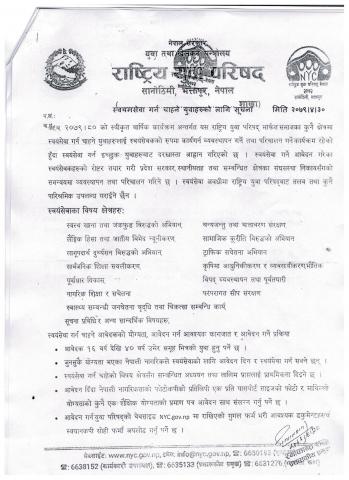 नेपाल सरकार
युवा तथा खेलकुद मन्त्रालय
राष्ट्रिय युवा परिषद
सानोठिमी, भक्तपुर, नेपाल
NYC
स्वयमसेवा गर्न चाहने युवाहरुको लागि सूचना
मिति २०७९।४।३०
प.सं.:
आ.व. २०७९।८० को स्वीकृत वार्षिक कार्यक्रम अन्तर्गत यस राष्ट्रिय युवा परिषद् मार्फत समाजका कुनै क्षेत्रमा
स्वयंसेवा गर्न चाहने युवाहरुलाई स्वयंसेवकको रुपमा कार्यगर्न व्यवस्थापन गर्ने तथा परिचालन गर्ने कार्यक्रम रहेको
हुँदा स्वयंसेवा गर्न इच्छुक युवाहरुबाट दरखास्त आह्वान गरिएको छ । स्वयंसेवा गर्ने आवेदन गरेका
स्वयंसेवकहरुको रोष्टर तयार गरी प्रदेश सरकार, स्थानीयतह तथा सम्बन्धित क्षेत्रका संघसंस्था निकायसँगको
समन्वयमा व्यवस्थापन तथा परिचालन गरिने छ । स्वयंसेवा अवधीमा राष्ट्रिय युवा परिषद्बाट तलब तथा कुनै
पारिश्रमिक उपलब्ध गराईने छैन ।
स्वयंसेवाका विषय क्षेत्रहरु:
स्वस्थ खाना तथा जंकफुड विरुद्धको अभियान,
लैङ्गिक हिंसा तथा जातीय विभेद न्यूनीकरण,
लागूपदार्थ दुर्व्यसन विरुद्धको अभियान,
सार्वजनिक शिक्षा सबलीकरण,
पूर्वाधार विकास,
नागरिक शिक्षा र सचेतना
स्वास्थ्य सम्बन्धी जनचेतना वृद्धि तथा चिकित्सा सम्बन्धि कार्य,
सूचना प्रविधि र अन्य सान्दर्भिक विषयहरु,
वन्यजन्तु तथा वातावरण संरक्षण,
सामाजिक कुरीति विरुद्धको अभियान
ट्राफिक सचेतना अभियान
कृषिमा आधुनिकीकरण र व्यवसायीकरण,
विपद् व्यवस्थापन तथा पूर्वतयारी
परंपरागत सीप संरक्षण
स्वयंसेवा गर्न चाहने आवेदकको योग्यता, आवेदन गर्न आवश्यक कागजात र आवेदन गर्ने प्रक्रिया
• आवेदक १६ वर्ष देखि ४० वर्ष उमेर समूह भित्रको युवा हुनु पर्ने छ ।
• जुनसुकै योग्यता भएका नेपाली नागरिकले स्वयंसेवाको लागि आवेदन दिन र स्वयंसेवा गर्न सक्ने छन् ।
• स्वयंसेवा गर्न चाहेको विषय क्षेत्रसँग सम्बन्धित अध्ययन तथा तालिम प्राप्तलाई प्राथमिकता दिइने छ ।
• आवेदन दिँदा नेपाली नागरिकताको फोटोकपीको प्रतिलिपि एक प्रति पासपोर्ट साइजको फोटो र माथिल्लो
योग्यताको कुनै एक शैक्षिक योग्यताको प्रमाण पत्र आवेदन साथ संलग्न गर्नु पर्ने छ ।
• आवेदन गर्न युवा परिषद्को वेबसाइड NYC.gov.np मा राखिएको गुगल फर्म भरी आवश्यक डकुमेण्टहरु
स्क्यानकपी सोही फर्ममा अपलोड गर्नु पर्ने छ ।
वेबसाईट: www.nyc.gov.np, इमेल: info@nyc.gov.np,